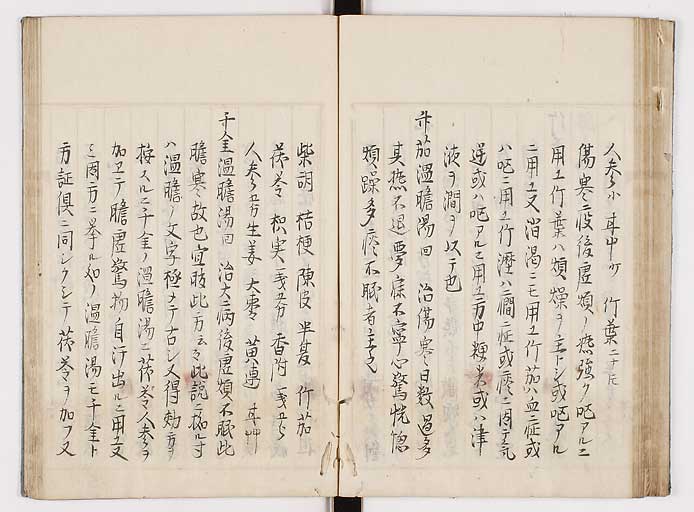 人参小 甘中 竹葉二十片
傷寒疫後虚煩ノ熱強ク嘔アルニ
用ユ竹葉ハ煩燥ヲ主シ或嘔アル
ニ用ユ又消渇ニモ用ユ竹茹ハ血ニ症或
ハ嘔ニ用ユ竹瀝ハニ症或ハ痰ニ因テ気
逆或ハ嘔アルニ用ユ方中粳米或ハ津
液ヲ潤ヲ以テ也
竹茹温膽湯回 治傷寒日数過多
其熱不退夢寐不寧心驚恍惚
煩躁多痰不眠者主之
柴胡 桔梗 陳皮 半夏 竹茹
茯苓 枳実 香附
人参 生姜 大棗 黄連 甘
千金温膽湯回 治大病後虚煩不眠此
膽寒故也宜服此方云々此説ニ拠ル
ハ温膽ノ文字極メテ古シ又得効方ヲ
按スルニ千金ノ温膽湯ニ茯苓人参ヲ
加エテ膽虚驚 自汗出ルニ用ユ又
三因方ニ挙ル処ノ温膽湯モ千金ト
方証倶ニ同シクシテ茯苓ヲ加フ又